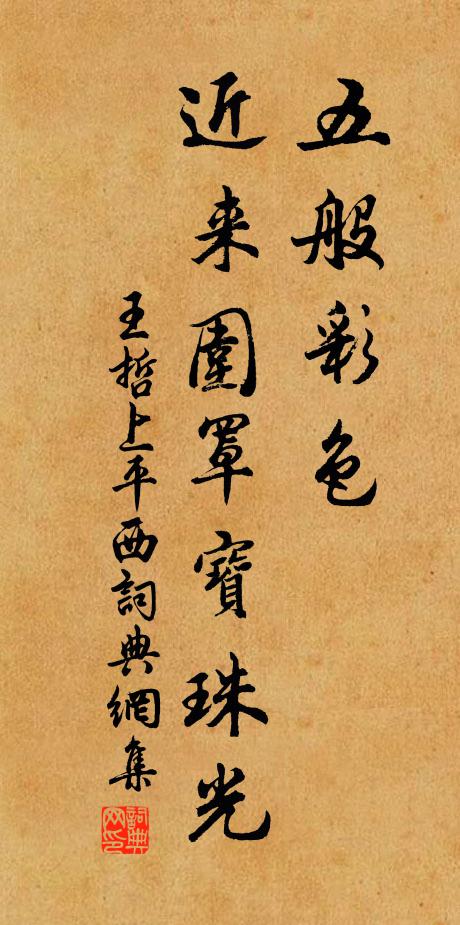 五般彩色
近来圍罩寶珠光
王哲上平西詞典網集
詞典网印